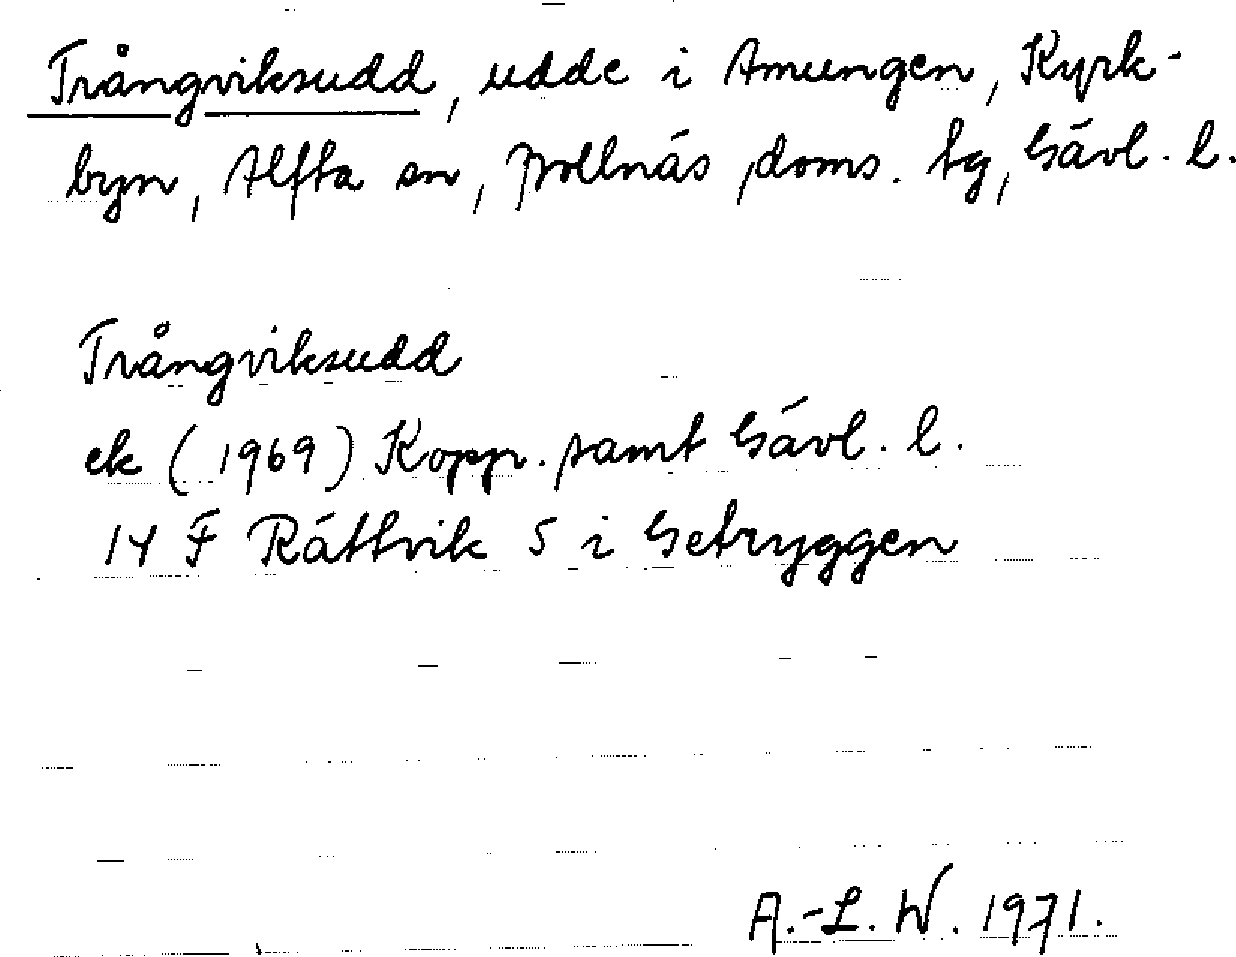 Trångviksudd, udde i Amungen, Kyrk-
byn, Alfta sn, Bollnäs doms. tg, Gävl. l.
Trångviksudd
ek (1969) Kopp. samt Gävl. l.
14 F Rättvik 5 i Getryggen
A.-L. W. 1971.